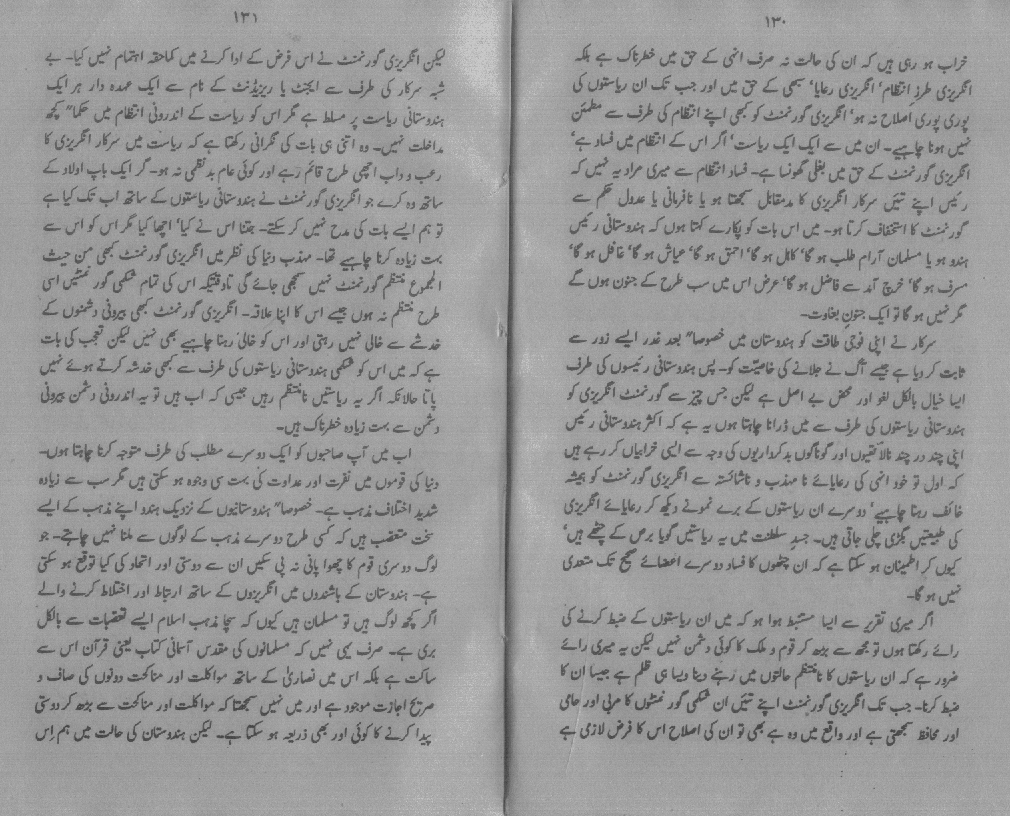 ۱۳۰
خراب ہو رہی ہیں کہ ان کی حالت نہ صرف انہی کے حق میں خطرناک ہے بلکہ
انگریزی طرز انتظام' انگریزی رعایا' سبھی کے حق میں اور جب تک ان ریاستوں کی
پوری پوری اصلاح نہ ہو' انگریزی گورنمنٹ کو کبھی اپنے انتظام کی طرف سے مطمئن
نہیں ہونا چاہیے۔ ان میں سے ایک ایک ریاست' اگر اس کے انتظام میں فساد ہے'
انگریزی گورنمنٹ کے حق میں بغلی گھونسا ہے۔ فساد انتظام سے میری مراد یہ نہیں کہ
رئیس اپنے تئیں سرکار انگریزی کا مدمقابل سمجھتا ہو یا نافرمانی یا عدول حکم سے
گورنمنٹ کا استخفاف کرتا ہو۔ میں اس بات کو پکارے کہتا ہوں کہ ہندوستانی رئیس
ہندو ہو یا مسلمان آرام طلب ہو گا' کاہل ہو گا' احمق ہو گا' عیاش ہو گا' غافل ہو گا'
مسرف ہو گا' خرچ آمد سے فاضل ہو گا' غرض اس میں سب طرح کے جنون ہوں گے
مگر نہیں ہو گا تو ایک جنونِ بغاوت۔
سرکار نے اپنی فوجی طاقت کو ہندوستان میں خصوصا" بعد غدر ایسے زور سے
ثابت کر دیا ہے جیسے آگ نے جلانے کی خاصیّت کو۔ پس ہندوستانی رئیسوں کی طرف
ایسا خیال بالکل لغو اور محض بے اصل ہے لیکن جس چیز سے گورنمنٹ انگریزی کو
ہندوستانی ریاستوں کی طرف سے میں ڈرانا چاہتا ہوں یہ ہے کہ اکثر ہندوستانی رئیس
اپنی چند در چند نالائقیوں اور گوناگوں بدکرداریوں کی وجہ سے ایسی خرابیاں کر رہے ہیں
کہ اول تو خود انہی کی رعایائے نا مہذب و ناشائستہ سے انگریزی گورنمنٹ کو ہمیشہ
خائف رہنا چاہیے' دوسرے ان ریاستوں کے برے نمونے دیکھ کر رعایائے انگریزی
کی طبیعتیں بگڑی چلی جاتی ہیں۔ جسدِ سلطنت میں یہ ریاستیں گویا برص کے چٹھے ہیں'
کیوں کر اطمینان ہو سکتا ہے کہ ان چٹھوں کا فساد دوسرے اعضائے صحیح تک متعدی
نہیں ہو گا۔
اگر میری تقریر سے ایسا مستنبط ہوا ہو کہ میں ان ریاستوں کے ضبط کرنے کی
رائے رکھتا ہوں تو مجھ سے بڑھ کر قوم و ملک کا کوئی دشمن نہیں لیکن یہ میری رائے
ضرور ہے کہ ان ریاستوں کا نامنتظم حالتوں میں رہنے دینا ویسا ہی ظلم ہے جیسا ان کا
ضبط کرنا۔ جب تک انگریزی گورنمنٹ اپنے تئیں ان شکمی گورنمنٹوں کا مربی اور حامی
اور محافظ سمجھتی ہے اور واقع میں وہ ہے بھی تو ان کی اصلاح اس کا فرض لازمی ہے
۱۳۱
لیکن انگریزی گورنمنٹ نے اس فرض کے ادا کرنے میں کماحقہ اہتمام نہیں کیا۔ بے
شبہ سرکار کی طرف سے ایجنٹ یا ریزیڈنٹ کے نام سے ایک عہدہ دار ہر ایک
ہندوستانی ریاست پر مسلط ہے مگر اس کو ریاست کے اندرونی انتظام میں حکما" کچھ
مداخلت نہیں۔ وہ اتنی ہی بات کی نگرانی رکھتا ہے کہ ریاست میں سرکار انگریزی کا
رعب و داب اچھی طرح قائم رہے اور کوئی عام بد نظمی نہ ہو۔ گر ایک باپ اولاد کے
ساتھ وہ کرے جو انگریزی گورنمنٹ نے ہندوستانی ریاستوں کے ساتھ اب تک کیا ہے
تو ہم ایسے باپ کی مدح نہیں کر سکتے۔ جتنا اس نے کیا' اچھا کیا مگر اس کو اس سے
بہت زیادہ کرنا چاہیے تھا۔ مہذب دنیا کی نظر میں انگریزی گورنمنٹ کبھی من حیث
المجموع منتظم گورنمنٹ نہیں سمجھی جائے گی تاوقتیکہ اس کی تمام شکمی گورنمنٹیں اسی
طرح منتظم نہ ہوں جیسے اس کا اپنا علاقہ۔ انگریزی گورنمنٹ کبھی بیرونی دشمنوں کے
خدشے سے خالی نہیں رہتی اور اس کو خالی رہنا چاہیے بھی نہیں لیکن تعجب کی بات
ہے کہ میں اس کو شکمی ہندوستانی ریاستوں کی طرف سے کبھی خدشہ کرتے ہوئے نہیں
پاتا حالانکہ اگر یہ ریاستیں نامنتظم رہیں جیسی کہ اب ہیں تو یہ اندرونی دشمن بیرونی
دشمن سے بہت زیادہ خطرناک ہیں۔
اب میں آپ صاحبوں کو ایک دوسرے مطلب کی طرف متوجہ کرنا چاہتا ہوں۔
دنیا کی قوموں میں نفرت اور عداوت کی بہت سی وجوہ ہو سکتی ہیں مگر سب سے زیادہ
شدید اختلاف مذہب ہے۔ خصوصا" ہندوستانیوں کے نزدیک ہندو اپنے مذہب کے ایسے
سخت متعصب ہیں کہ کسی طرح دوسرے مذہب کے لوگوں سے ملنا نہیں چاہتے۔ جو
لوگ دوسری قوم کا چھوا پانی نہ پی سکیں ان سے دوستی اور اتحاد کی کیا توقع ہو سکتی
ہے۔ ہندوستان کے باشندوں میں انگریزوں کے ساتھ ارتباط اور اختلاط کرنے والے
اگر کچھ لوگ ہیں تو مسلمان ہیں کیوں کہ سچا مذہب اسلام ایسے تعصبات سے بالکل
بری ہے۔ صرف یہی نہیں کہ مسلمانوں کی مقدس آسمانی کتاب یعنی قرآن اس سے
ساکت ہے بلکہ اس میں نصاریٰ کے ساتھ مواکلت اور مناکحت دونوں کی صاف و
صریح اجازت موجود ہے اور میں نہیں سمجھتا کہ مواکلت اور مناکحت سے بڑھ کر دوستی
پیدا کرنے کا کوئی اور بھی ذریعہ ہو سکتا ہے۔ لیکن ہندوستان کی حالت میں ہم اِس